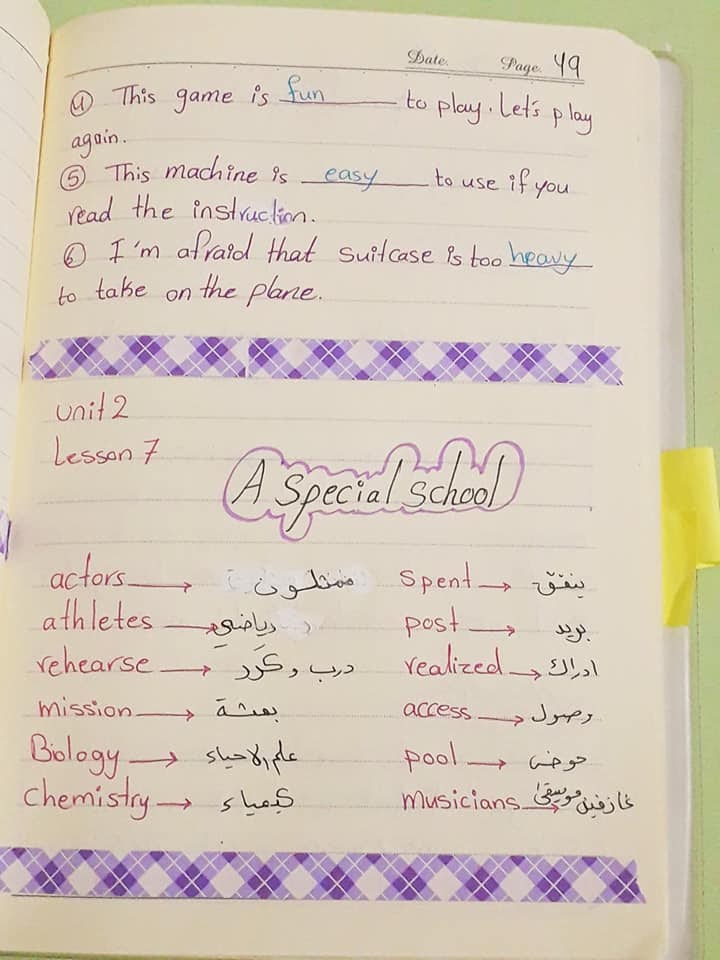 Date. Page. 49
④ This game is fun to play. Let's play
again.
⑤ This machine is easy to use if you
read the instruction.
⑥ I'm afraid that suitcase is too heavy
to take on the plane.
unit 2
Lesson 7
A special school
actors → ممثلون
spent → ينفق
athletes → رياضي
post → بريد
rehearse → درب وكرر
realized → ادراك
mission → بعثة
access → وصول
Biology → علم الاحياء
pool → حوض
chemistry → كيمياء
musicians → عازفين موسيقى